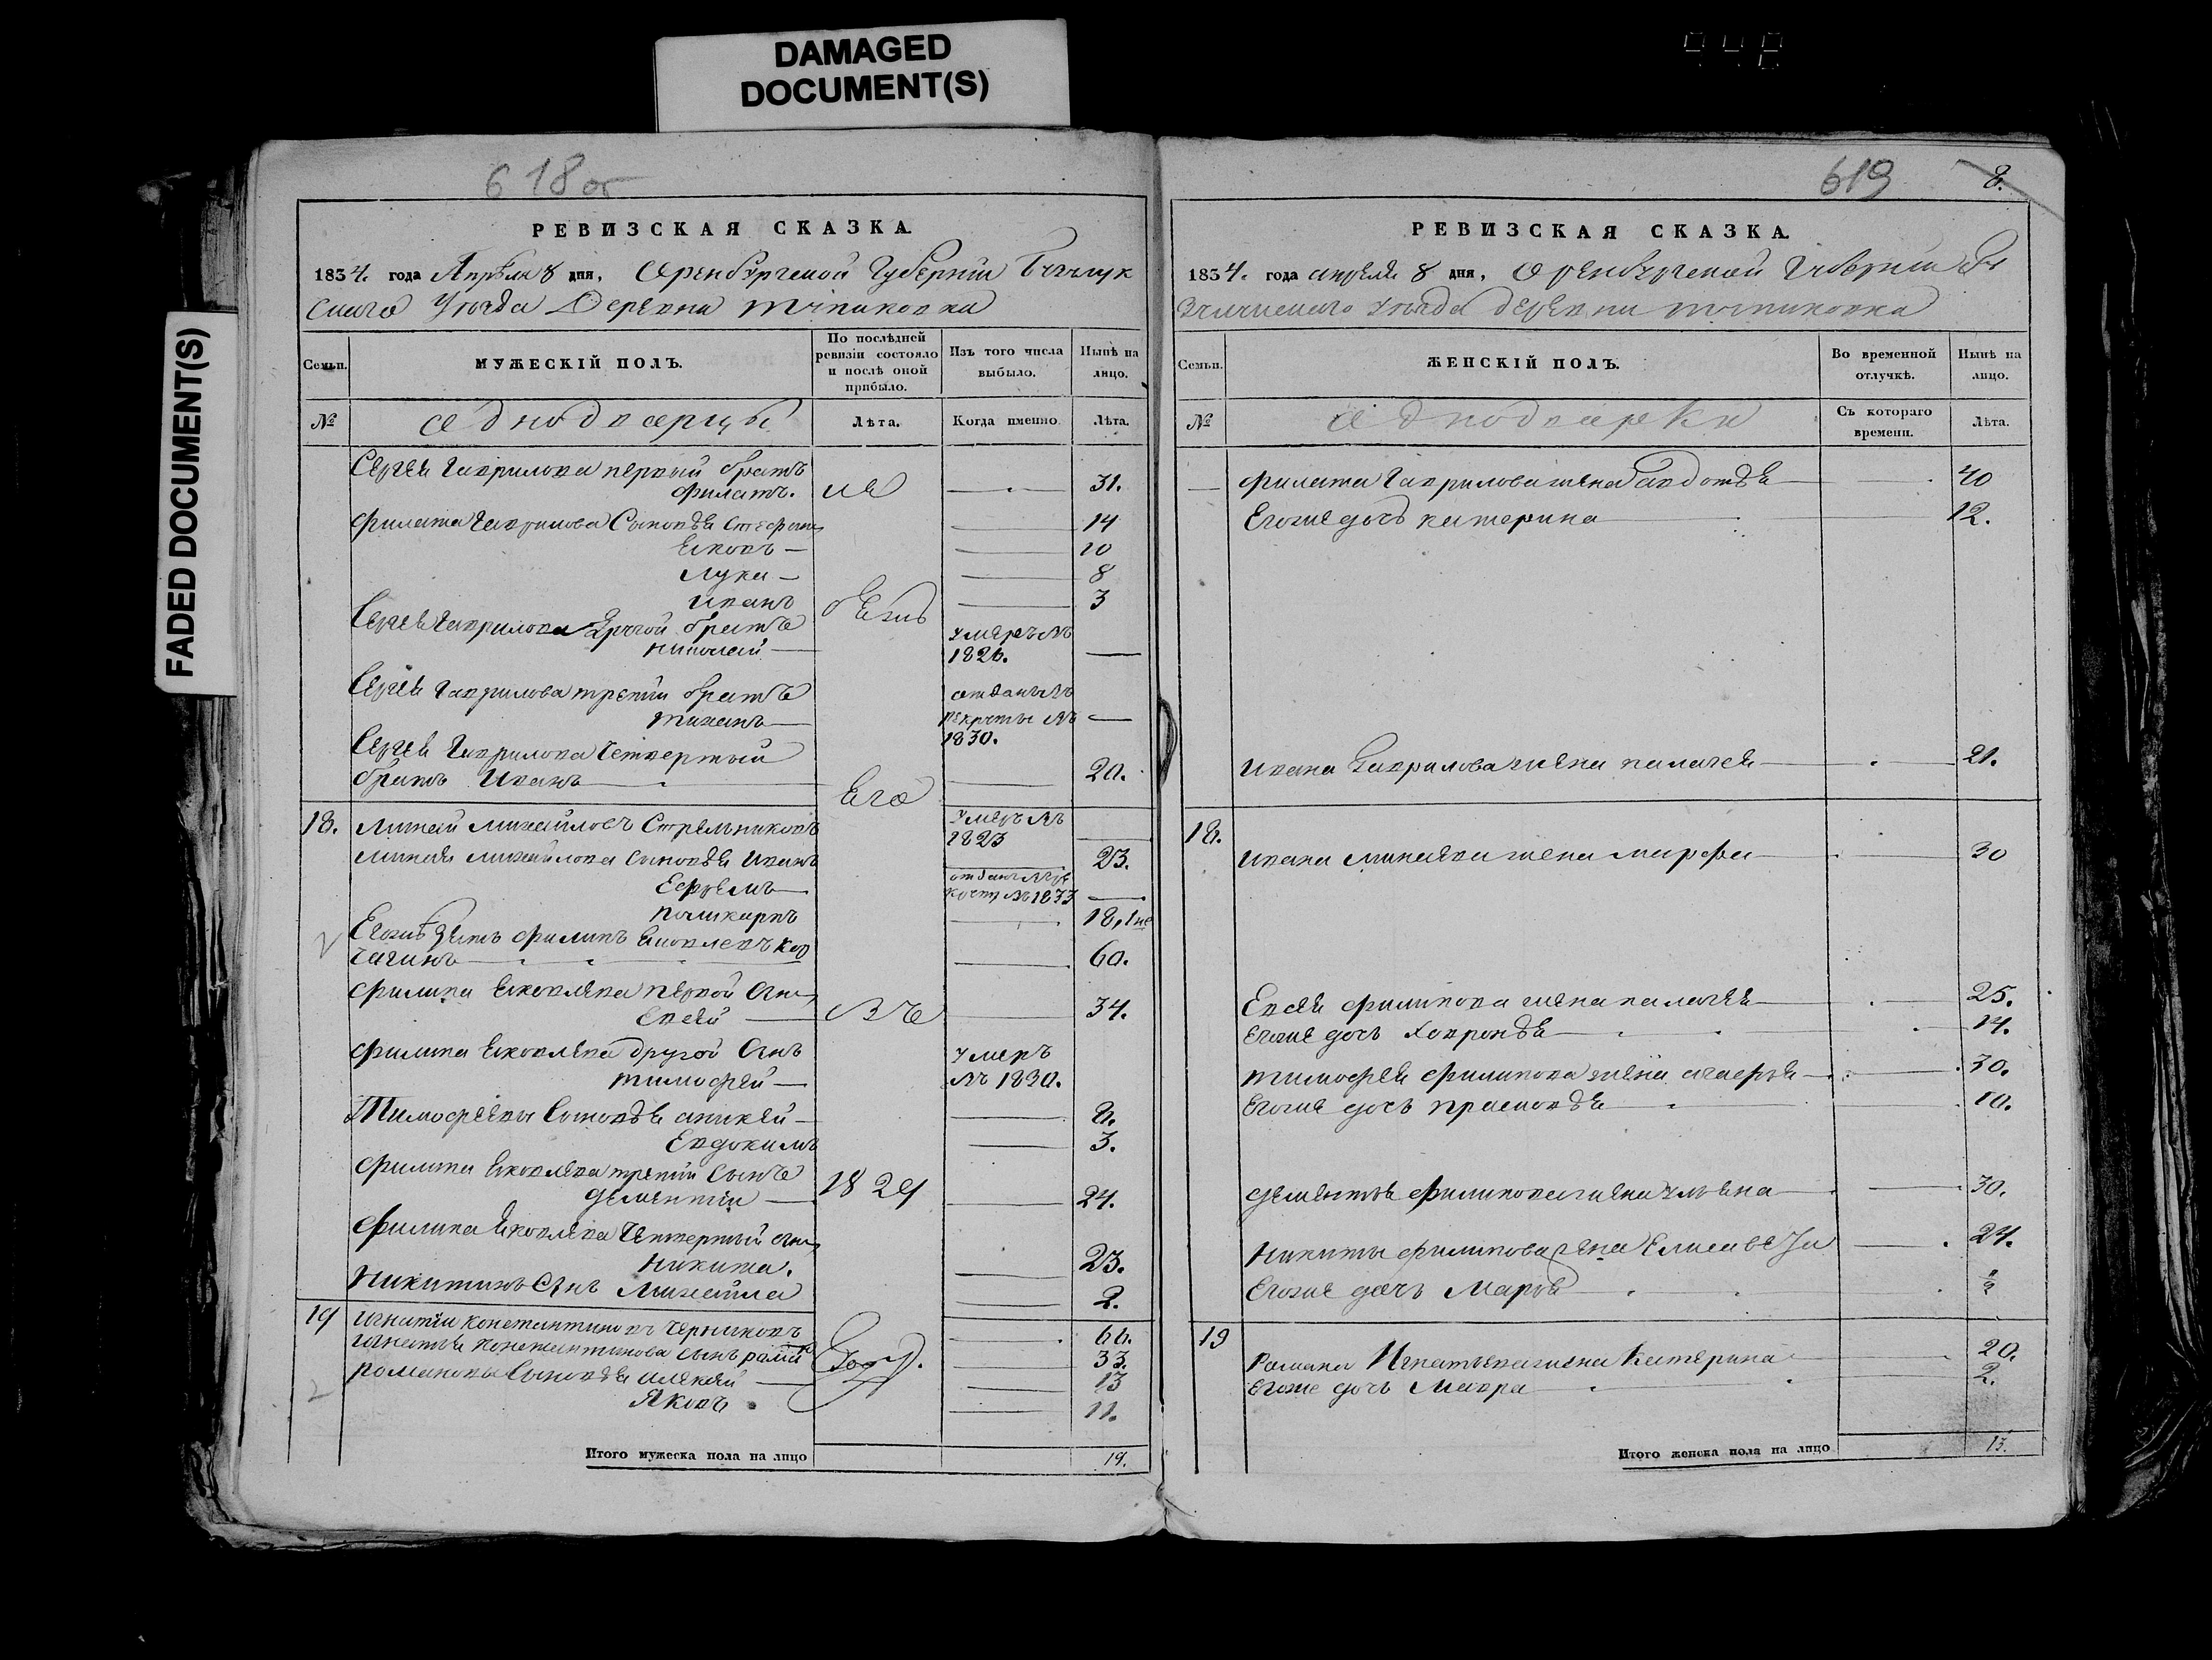 DAMAGED
DOCUMENT(S)
FADED DOCUMENT(S)
618 об
РЕВИЗСКАЯ СКАЗКА.
1834. года Апреля 8 дня, Оренбургской Губернїи Бузулук
скаго Уезда Деревни
Семьи.
МУЖЕСКІЙ ПОЛЪ.
По послѣдней
ревизіи состояло
и послѣ оной
прибыло.
Изъ того числа
выбыло.
Нынѣ на
лицо.
№
однодворцы
Лѣта.
Когда именно.
Лѣта.
Сергея Гаврилова первый братъ
Филатъ. 31.
Филата Гаврилова Сыновья Стефанъ 14
Яковъ 10
Лука 8
Иванъ 3
Сергея Гаврилова другой братъ умеръ въ
Николай 1826.
Сергея Гаврилова третій братъ отданъ въ
рекруты въ
1830.
Сергея Гаврилова Четвертый
братъ Иванъ 20.
Его
18. Минай Михайловъ Стрельниковъ умеръ въ
1823
Миная Михайлова сыновья Иванъ 23.
Ефремъ отданъ въ 1833
Поликарпъ 18,
Егожъ зять Филипъ Яковлевъ Кор
чагинъ 60.
Филипа Яковлева первой сынъ
Евсей 34.
въ
Филипа Яковлева другой сынъ умеръ
Тимофей въ 1830.
Тимофеевы Сыновья Аникей 8.
Евдокимъ 3.
Филипа Яковлева третій сынъ
Дементій 24.
182
Филипа Яковлева Четвертый сынъ
Никита. 23.
Никитинъ Сынъ Михайла 2.
19 Игнатій Константиновъ Черниковъ 66.
Игнатья Константинова сынъ Романъ 33.
году.
Романовы Сыновья Алексей 13
Яковъ 11.
Итого мужеска пола на лицо 19.
619 8.
РЕВИЗСКАЯ СКАЗКА.
1834. года апреля 8 дня, Оренбургской Губернїи Бу
зулускаго уезда деревни
Семьи.
ЖЕНСКІЙ ПОЛЪ.
Во временной
отлучкѣ.
Нынѣ на
лицо.
№
однодворки
Съ котораго
времени.
Лѣта.
Филата Гаврилова жена Авдотья 40
Егоже дочь Катерина 12.
Ивана Гаврилова жена Палагея 21.
18. Ивана Минаева жена Марфа 30
Евсея Филипова жена Палагея 25.
Егоже дочь Хавронья 14.
Тимофея Филипова жена 30.
Егоже дочь Прасковья 10.
Дементья Филипова жена Ульяна 30.
Никиты Филипова жена Елисавета 24.
Егоже дочь Марья
19 Романа Игнатьева жена Катерина 20.
Егоже дочь Мавра 2.
Итого женска пола на лицо 13.